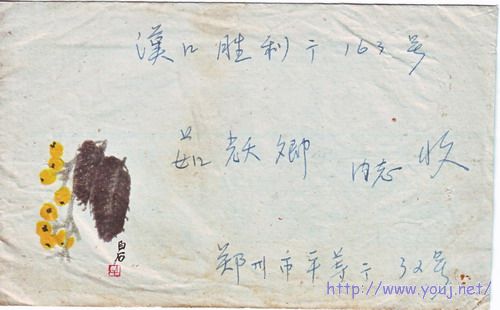 漢口胜利亍163号
茹 卿 同志 收
白石
郑州市平等亍32号
http://www.youj.net/